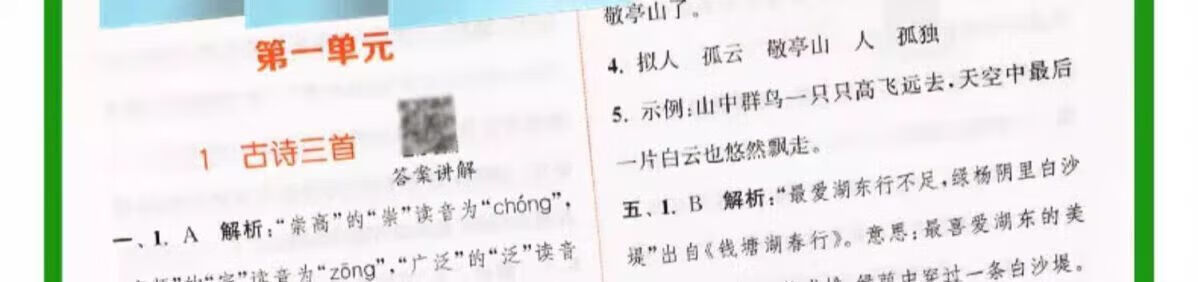 第一单元
1 古诗三首
答案讲解
一、1. A 解析:“崇高”的“崇”读音为“chóng”,
读音为“zōng”,“广泛”的“泛”读音
敬亭山了。
4. 拟人 孤云 敬亭山 人 孤独
5. 示例:山中群鸟一只只高飞远去,天空中最后
一片白云也悠然飘走。
五、1. B 解析:“最爱湖东行不足,绿杨阴里白沙
堤”出自《钱塘湖春行》。意思:最喜爱湖东的美
穿过一条白沙堤。